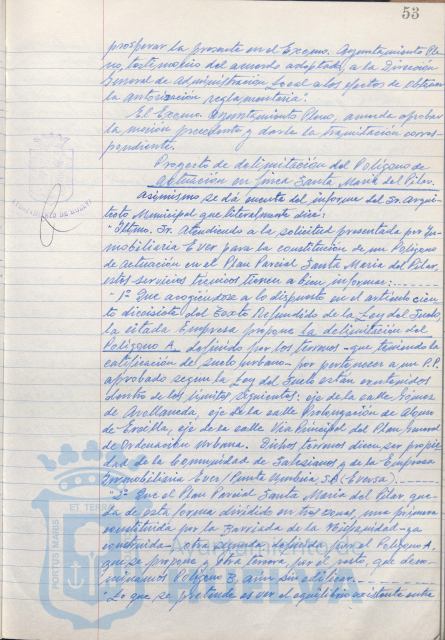 53
prosperar la presente en el Excmo. Ayuntamiento Ple-
no, testimonio del acuerdo adoptado, a la Dirección
General de Administración Local a los efectos de obtener
la autorización reglamentaria.
El Excmo. Ayuntamiento Pleno, acuerda aprobar
la moción precedente y darle la tramitación corres-
pondiente.
Proyecto de delimitación del Polígono de
actuación en finca Santa María del Pilar.
Asimismo se da cuenta del informe del Sr. Arqui-
tecto Municipal que literalmente dice:
"Iltmo. Sr. Atendiendo a la solicitud presentada por In-
mobiliaria Ever para la constitución de un Polígono
de actuación en el Plan Parcial Santa María del Pilar,
estos servicios técnicos tienen a bien informar:
"1º Que acogiéndose a lo dispuesto en el artículo cien-
to diecisiete del Texto Refundido de la Ley del Suelo,
la citada Empresa propone la delimitación del
Polígono A, definido por los terrenos - que teniendo la
calificación de suelo urbano - por pertenecer a un P.P.
aprobado según la Ley del Suelo están contenidos
dentro de los límites siguientes: eje de la calle Gómez
de Avellaneda, eje de la calle Prolongación de Alonso
de Ercilla, eje de la calle Vía Principal del Plan General
de Ordenación Urbana. Dichos terrenos dicen ser propie-
dad de la Comunidad de Salesianos y de la Empresa
Inmobiliaria Ever/Punta Umbría S.A.
Que el Plan Parcial Santa María del Pilar que-
da de esta forma dividido en tres zonas, una primera
constituida por la Barriada de la Hispanidad - ya
construida - otra segunda definida por el Polígono A.
que se propone y otra tercera, por el resto, que deno-
minamos Polígono B, aún sin edificar.
"Lo que se pretende es ver el equilibrio existente entre
AYUNTAMIENTO DE HUELVA
PORTUS MARIS ET TERRE
Ayuntamiento
HUELVA